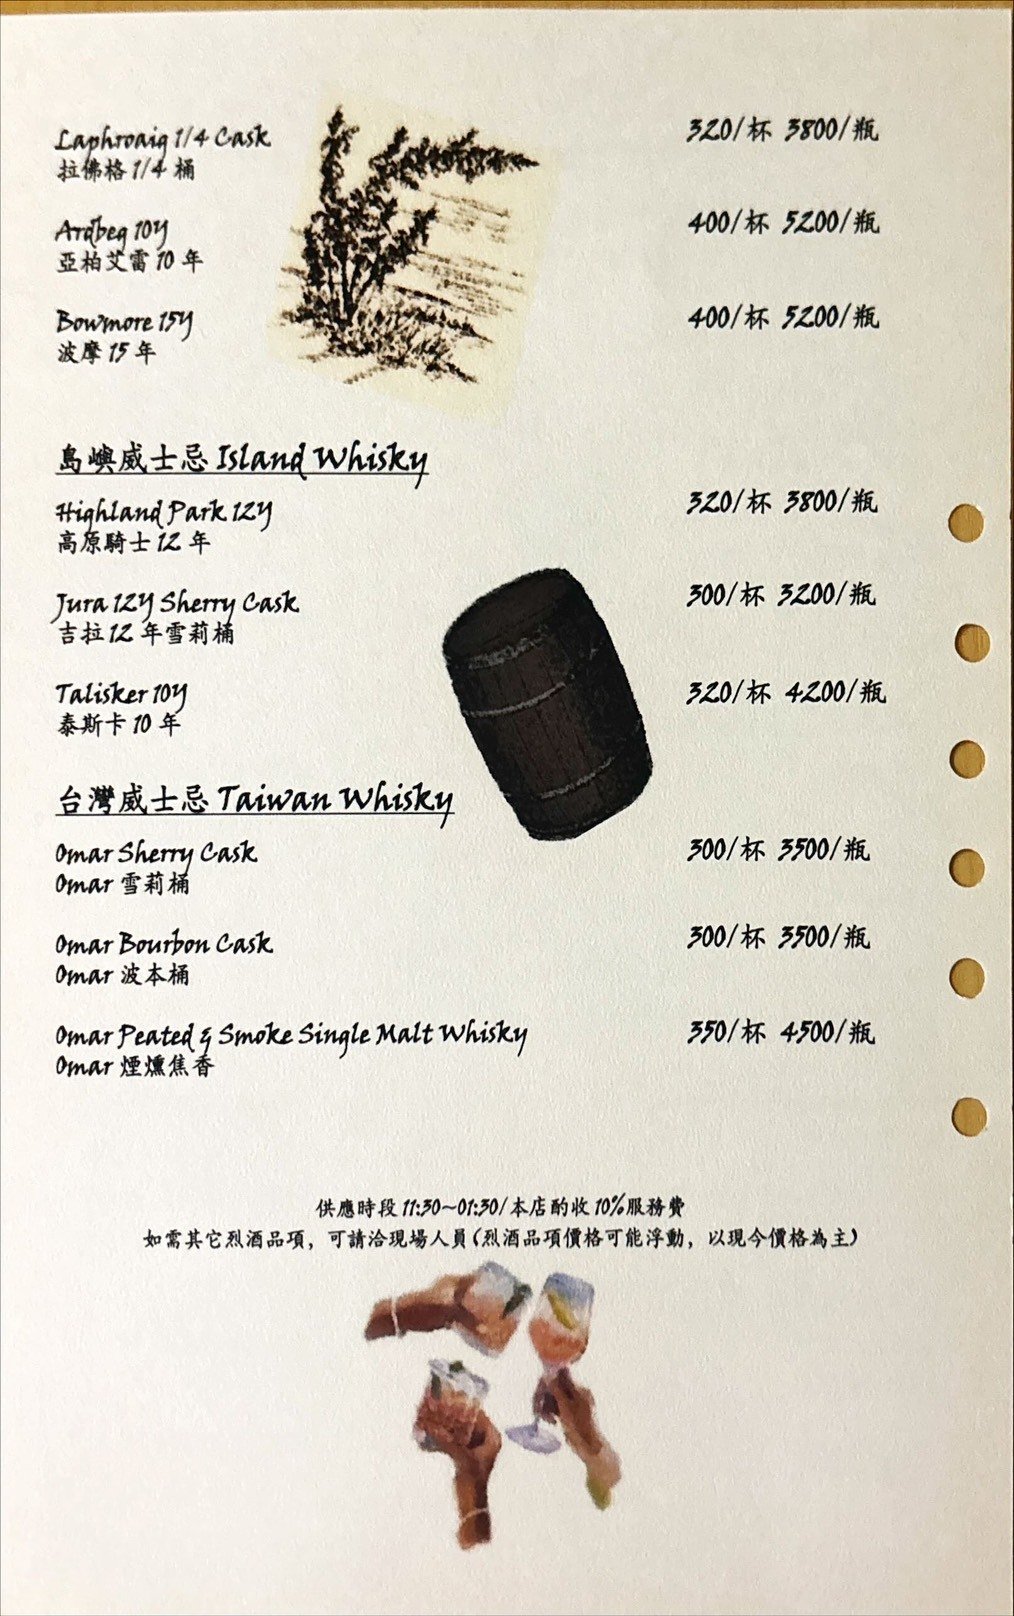 Laphroaig 1/4 Cask 320/杯 3800/瓶
拉佛格 1/4 桶
Ardbeg 10Y 400/杯 5200/瓶
亞柏艾雷 10 年
Bowmore 15Y 400/杯 5200/瓶
波摩 15 年
島嶼威士忌 Island Whisky
Highland Park 12Y 320/杯 3800/瓶
高原騎士 12 年
Jura 12Y Sherry Cask 300/杯 3200/瓶
吉拉 12 年雪莉桶
Talisker 10Y 320/杯 4200/瓶
泰斯卡 10 年
台灣威士忌 Taiwan Whisky
Omar Sherry Cask 300/杯 3500/瓶
Omar 雪莉桶
Omar Bourbon Cask 300/杯 3500/瓶
Omar 波本桶
Omar Peated & Smoke Single Malt Whisky 350/杯 4500/瓶
Omar 煙燻焦香
供應時段 11:30~01:30/本店酌收 10%服務費
如需其它烈酒品項，可請洽現場人員(烈酒品項價格可能浮動，以現今價格為主)